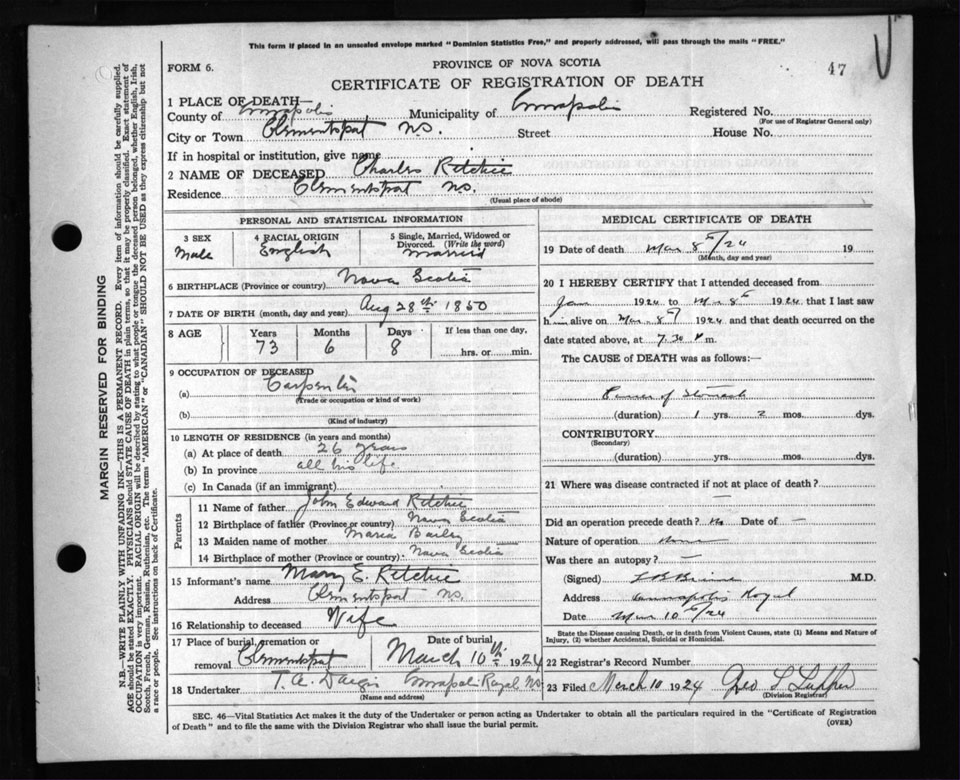 This form if placed in an unsealed envelope marked "Dominion Statistics Free," and properly addressed, will pass through the mails "FREE."
FORM 6.
PROVINCE OF NOVA SCOTIA
47
CERTIFICATE OF REGISTRATION OF DEATH
1 PLACE OF DEATH—
County of Annapolis Municipality of Annapolis Registered No.
(For use of Registrar General only)
City or Town Clementsport NS. Street House No.
If in hospital or institution, give name
2 NAME OF DECEASED Charles Ritchie
Residence Clementsport NS.
(Usual place of abode)
PERSONAL AND STATISTICAL INFORMATION
3 SEX 4 RACIAL ORIGIN 5 Single, Married, Widowed or Divorced. (Write the word)
Male English Married
6 BIRTHPLACE (Province or country) Nova Scotia
7 DATE OF BIRTH (month, day and year) Aug 28th 1850
8 AGE Years Months Days If less than one day,
73 6 8 hrs. or min.
9 OCCUPATION OF DECEASED
(a) Carpenter
(Trade or occupation or kind of work)
(b)
(Kind of industry)
10 LENGTH OF RESIDENCE (in years and months)
(a) At place of death 26 years
(b) In province all his life
(c) In Canada (if an immigrant)
Parents
11 Name of father John Edward Ritchie
12 Birthplace of father (Province or country) Nova Scotia
13 Maiden name of mother Maria Bailey
14 Birthplace of mother (Province or country) Nova Scotia
15 Informant's name Mary E. Ritchie
Address Clementsport NS.
16 Relationship to deceased Wife
17 Place of burial, cremation or removal Clementsport
Date of burial March 10th 1924
18 Undertaker T. A. Annapolis Royal NS
(Name and address)
MEDICAL CERTIFICATE OF DEATH
19 Date of death Mar 8th/24 19
(Month, day and year)
20 I HEREBY CERTIFY that I attended deceased from
Jan 1924 to Mar 8th 1924 that I last saw
him alive on Mar 8th 1924 and that death occurred on the
date stated above, at 7.30 m.
The CAUSE of DEATH was as follows:—
Cancer of Stomach
(duration) 1 yrs. 2 mos. dys.
CONTRIBUTORY
(Secondary)
(duration) yrs. mos. dys.
21 Where was disease contracted if not at place of death?
Did an operation precede death? no Date of —
Nature of operation None
Was there an autopsy? —
(Signed) M.D.
Address Annapolis Royal
Date Mar 10th/24
State the Disease causing Death, or in death from Violent Causes, state (1) Means and Nature of
Injury, (2) whether Accidental, Suicidal or Homicidal.
22 Registrar's Record Number
23 Filed March 10 1924 Geo L
(Division Registrar)
SEC. 46—Vital Statistics Act makes it the duty of the Undertaker or person acting as Undertaker to obtain all the particulars required in the "Certificate of Registration
of Death" and to file the same with the Division Registrar who shall issue the burial permit.
(OVER)
MARGIN RESERVED FOR BINDING
N.B.—WRITE PLAINLY WITH UNFADING INK—THIS IS A PERMANENT RECORD. Every item of information should be carefully supplied.
AGE should be stated EXACTLY. PHYSICIANS should STATE CAUSE OF DEATH in plain terms, so that it may be properly classified. Exact statement of
OCCUPATION is very important. RACIAL ORIGIN will be described by stating to what people or tongue the deceased person belonged, whether English, Irish,
Scotch, French, German, Russian, Ruthenian, etc. The terms "AMERICAN" or "CANADIAN" SHOULD NOT BE USED as they express citizenship but not
a race or people. See instructions on back of Certificate.